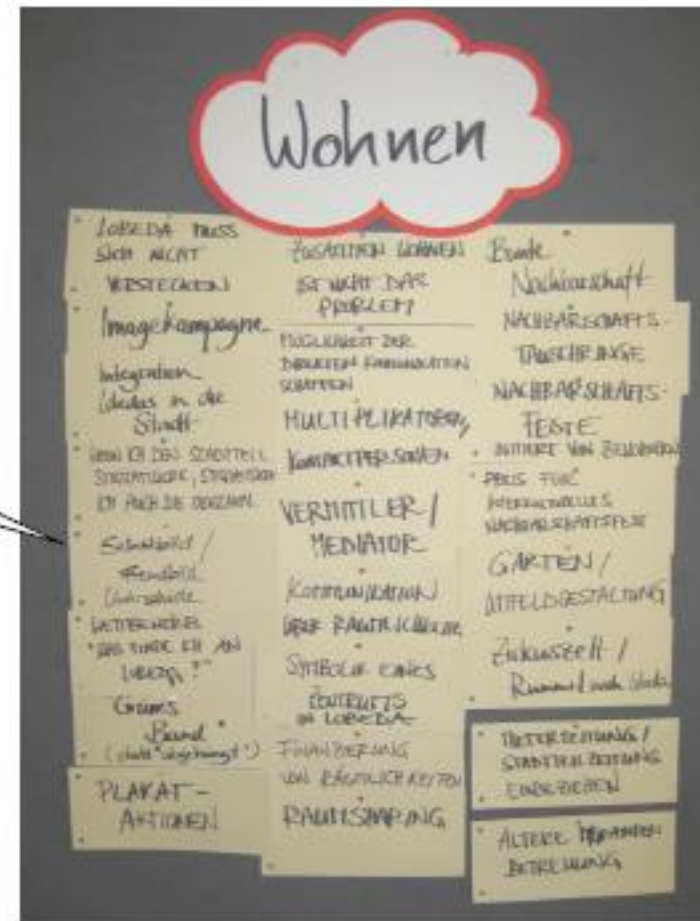 Wohnen
LOBEDA MUSS
SICH NICHT
VERSTECKEN
Imagekampagne
Integration
in die
Stadt
WENN ICH DEN STADTTEIL
ICH AUCH DIE
Feindbild
WETTBEWERB
"WAS FINDE ICH AN
LOBEDA?"
Grünes
Band
(statt "abgehängt")
PLAKAT-
AKTIONEN
ZUSAMMEN WOHNEN
IST NICHT DAS
PROBLEM
MÖGLICHKEIT DER
DIREKTEN KOMMUNIKATION
SCHAFFEN
MULTIPLIKATOREN,
KONTAKTPERSONEN
VERMITTLER /
MEDIATOR
KOMMUNIKATION
ÜBER RÄUMLICHKEITEN
SYMBOLIK EINES
ZENTRUMS
IN LOBEDA
FINANZIERUNG
VON RÄUMLICHKEITEN
RAUMSHARING
Bunte
Nachbarschaft
NACHBARSCHAFTS-
TAUSCHRINGE
NACHBARSCHAFTS-
FESTE
INITIIERT VON BEWOHNERN
PREIS FÜR
INTERKULTURELLES
NACHBARSCHAFTSFEST
GÄRTEN /
UMFELDGESTALTUNG
Zirkuszelt /
Rummel nach Lobeda
MIETERZEITUNG /
STADTTEILZEITUNG
EINBEZIEHEN
ÄLTERE MIGRANTEN
BETREUUNG